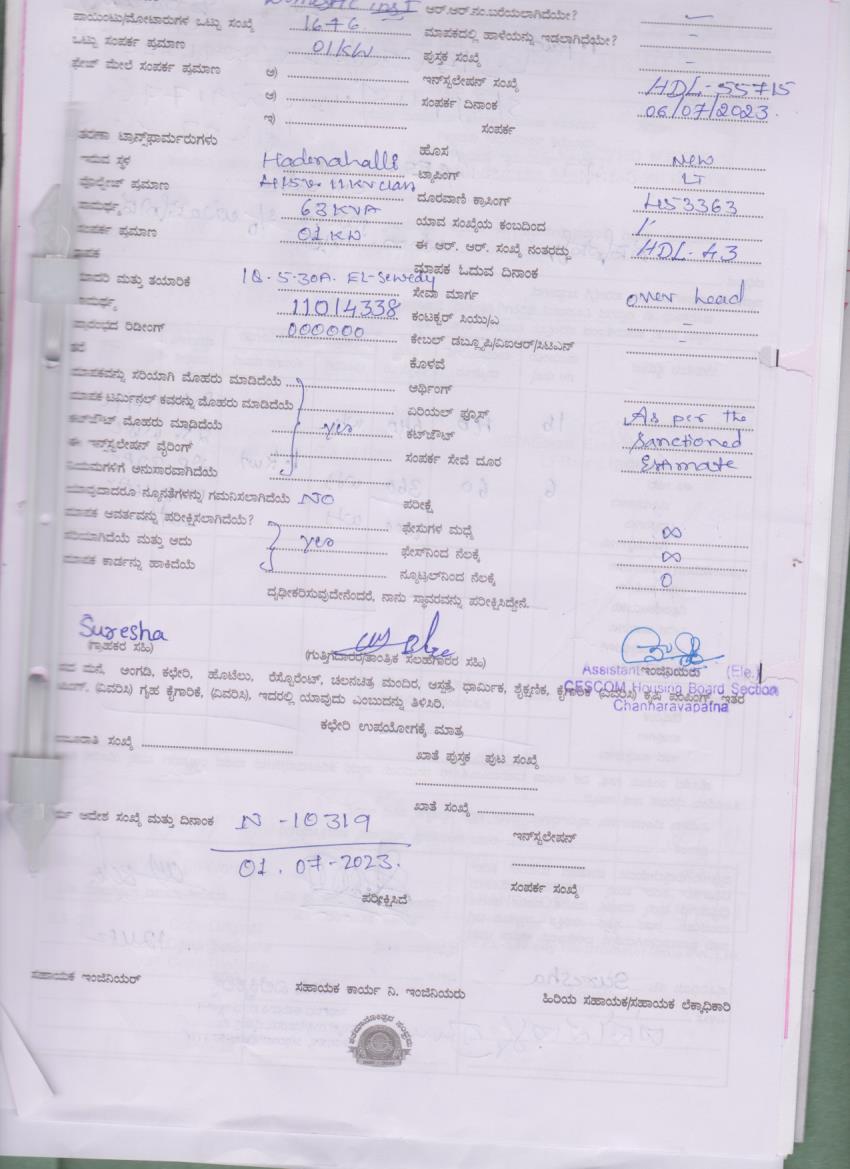 Domestic inst ಆರ್.ಆರ್.ನಂ.ಬರೆಯಲಾಗಿದೆಯೇ?
ಪಾಯಿಂಟು/ಮೋಟಾರುಗಳ ಒಟ್ಟು ಸಂಖ್ಯೆ ಮಾಪಕದಲ್ಲಿ ಹಾಳೆಯನ್ನು ಇಡಲಾಗಿಧೆಯೇ? -
ಒಟ್ಟು ಸಂಪರ್ಕ ಪ್ರಮಾಣ 01KW ಪುಸ್ತಕ ಸಂಖ್ಯೆ -
ಫೇಜ್ ಮೇಲೆ ಸಂಪರ್ಕ ಪ್ರಮಾಣ ಅ) ಇನ್‌ಸ್ಟಲೇಷನ್ ಸಂಖ್ಯೆ HDL-55715
ಆ) ಸಂಪರ್ಕ ದಿನಾಂಕ 06/07/2023
ಇ) ಸಂಪರ್ಕ
ತರಣಾ ಟ್ರಾನ್ಸ್‌ಫಾರ್ಮರುಗಳು ಹೊಸ New
ಇರುವ ಸ್ಥಳ Hadenahalli ಟ್ಯಾಪಿಂಗ್ LT
ವೋಲ್ಟೇಜ್ ಪ್ರಮಾಣ 11KV class ದೂರವಾಣಿ ಕ್ರಾಸಿಂಗ್ 453363
ಸಾಮರ್ಥ್ಯ 63KVA ಯಾವ ಸಂಖ್ಯೆಯ ಕಂಬದಿಂದ
ಸಂಪರ್ಕ ಪ್ರಮಾಣ 01KW ಈ ಆರ್. ಆರ್. ಸಂಖ್ಯೆ ನಂತರದ್ದು HDL-43
ಮಾಪಕ ಮಾಪಕ ಓದುವ ದಿನಾಂಕ
ಮಾದರಿ ಮತ್ತು ತಯಾರಿಕೆ 1Ø. 5-30A. EL-Sewedy ಸೇವಾ ಮಾರ್ಗ over head
ಸಾಮರ್ಥ್ಯ 11014338 ಕಂಟಕ್ಟರ್ ಸಿಯು/ಎ -
ಪ್ರಾರಂಭದ ರಿಡೀಂಗ್ 000000 ಕೇಬಲ್ ಡಬ್ಲ್ಯೂಪಿ/ವಿಐಆರ್/ಸಿಟಿಎನ್ -
ಕೊಳವೆ
ಮಾಪಕವನ್ನು ಸರಿಯಾಗಿ ಮೊಹರು ಮಾಡಿದೆಯೆ ಆರ್ಥಿಂಗ್
ಮಾಪಕ ಟರ್ಮಿನಲ್ ಕವರನ್ನು ಮೊಹರು ಮಾಡಿದೆಯೆ ಏರಿಯಲ್ ಫ್ಯೂಸ್ As per the
ಕಟ್‌ಔಟ್ ಮೊಹರು ಮಾಡಿದೆಯೆ yes ಕಟ್‌ಔಟ್ Sanctioned
ಈ ಇನ್‌ಸ್ಟಲೇಷನ್ ವೈರಿಂಗ್ ಸಂಪರ್ಕ ಸೇವೆ ದೂರ Estimate
ನಿಯಮಗಳಿಗೆ ಅನುಸಾರವಾಗಿದೆಯೆ
ಯಾವುದಾದರೂ ನ್ಯೂನತೆಗಳನ್ನು ಗಮನಿಸಲಾಗಿದೆಯೆ NO ಪರೀಕ್ಷೆ
ಮಾಪಕ ಆವರ್ತವನ್ನು ಪರೀಕ್ಷಿಸಲಾಗಿದೆಯೆ? ಫೇಸುಗಳ ಮಧ್ಯೆ ∞
ಸರಿಯಾಗಿದೆಯೆ ಮತ್ತು ಅದು yes ಫೇಸ್‌ನಿಂದ ನೆಲಕ್ಕೆ ∞
ಮಾಪಕ ಕಾರ್ಡನ್ನು ಹಾಕಿದೆಯೆ ನ್ಯೂಟ್ರಲ್‌ನಿಂದ ನೆಲಕ್ಕೆ 0
ದೃಢೀಕರಿಸುವುದೇನೆಂದರೆ, ನಾನು ಸ್ಥಾವರವನ್ನು ಪರೀಕ್ಷಿಸಿದ್ದೇನೆ.
Suresha
(ಗ್ರಾಹಕರ ಸಹಿ) (ಗುತ್ತಿಗೆದಾರರ/ತಾಂತ್ರಿಕ ಸಲಹಾಗಾರರ ಸಹಿ) Assistant ಇಂಜಿನಿಯರು (Ele.)
ಮನೆ, ಅಂಗಡಿ, ಕಛೇರಿ, ಹೊಟೆಲು, ರೆಸ್ಟೊರೆಂಟ್, ಚಲನಚಿತ್ರ ಮಂದಿರ, ಆಸ್ಪತ್ರೆ, ಧಾರ್ಮಿಕ, ಶೈಕ್ಷಣಿಕ, ಕೈಗಾರಿಕೆ (ವಿವರಿಸಿ) ಕೃಷಿ ಪಂಪಿಂಗ್, ಇತರ
CESCOM Housing Board Section
(ವಿವರಿಸಿ) ಗೃಹ ಕೈಗಾರಿಕೆ, (ವಿವರಿಸಿ), ಇದರಲ್ಲಿ ಯಾವುದು ಎಂಬುದನ್ನು ತಿಳಿಸಿರಿ.
Channarayapatna
ಕಛೇರಿ ಉಪಯೋಗಕ್ಕೆ ಮಾತ್ರ
ಸಂಖ್ಯೆ ಖಾತೆ ಪುಸ್ತಕ ಪುಟ ಸಂಖ್ಯೆ
ಖಾತೆ ಸಂಖ್ಯೆ
ಆದೇಶ ಸಂಖ್ಯೆ ಮತ್ತು ದಿನಾಂಕ N-10319
ಇನ್‌ಸ್ಟಲೇಷನ್
01.07-2023.
ಸಂಪರ್ಕ ಸಂಖ್ಯೆ
ಪರೀಕ್ಷಿಸಿದೆ
ಸಹಾಯಕ ಇಂಜಿನಿಯರ್ ಸಹಾಯಕ ಕಾರ್ಯ ನಿ. ಇಂಜಿನಿಯರು ಹಿರಿಯ ಸಹಾಯಕ/ಸಹಾಯಕ ಲೆಕ್ಕಾಧಿಕಾರಿ